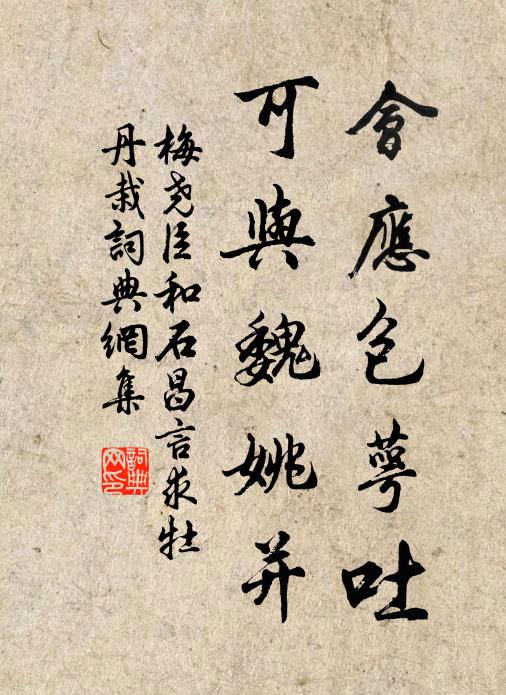 會應色萼吐
可與魏姚并
梅尧臣和石昌言求牡
丹栽詞典網集
詞典
网印